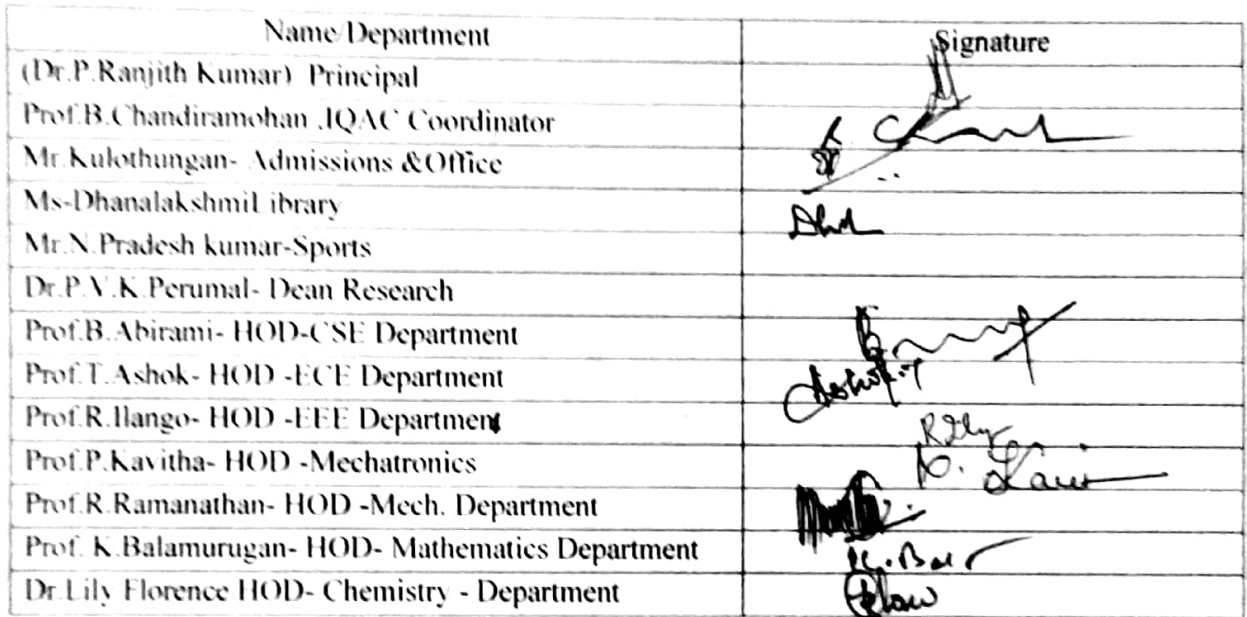 Name/Department Signature
(Dr.P.Ranjith Kumar) Principal
Prof.B.Chandiramohan ,IQAC Coordinator
Mr.Kulothungan- Admissions &Office
Ms-DhanalakshmiLibrary
Mr.N.Pradesh kumar-Sports
Dr.P.V.K.Perumal- Dean Research
Prof.B.Abirami- HOD-CSE Department
Prof.T.Ashok- HOD -ECE Department Ashok.T
Prof.R.Ilango- HOD -EEE Department
Prof.P.Kavitha- HOD -Mechatronics
Prof.R.Ramanathan- HOD -Mech. Department
Prof. K.Balamurugan- HOD- Mathematics Department
Dr.Lily Florence HOD- Chemistry - Department